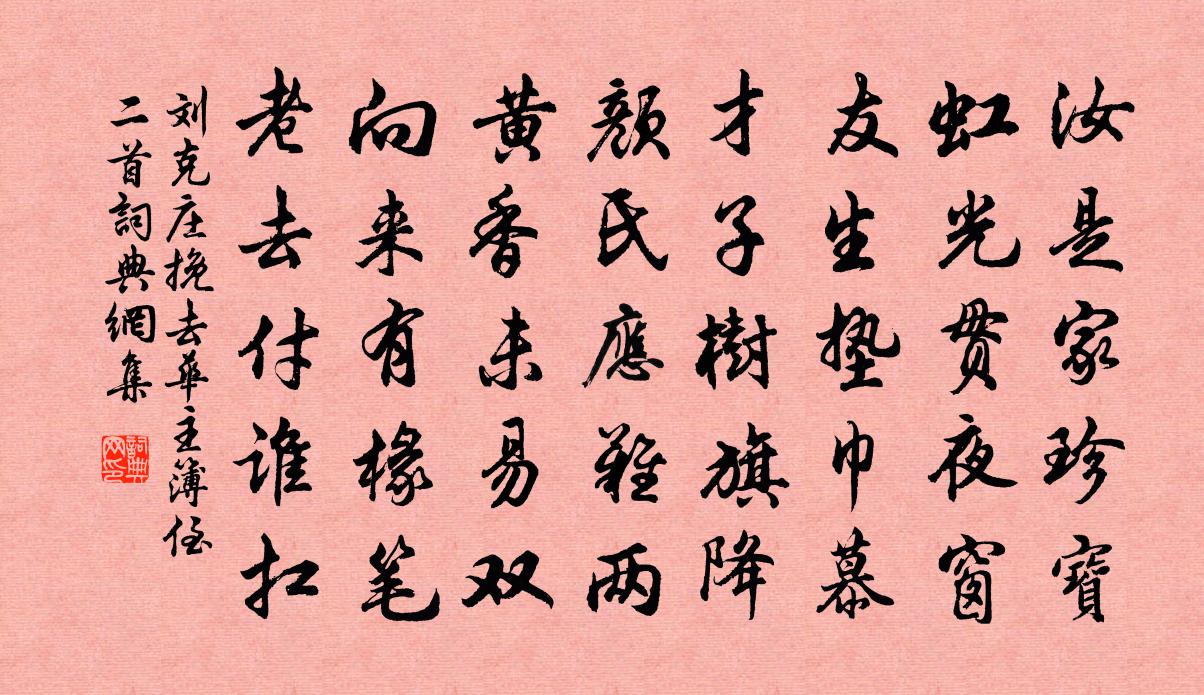 汝是家珍寶
虹光贯夜窗
友生垫巾慕
才子樹旗降
颜氏應難两
黄香未易双
向来有椽笔
老去付谁扛
刘克庄挽去華主簿侄
二首詞典網集
詞典网印